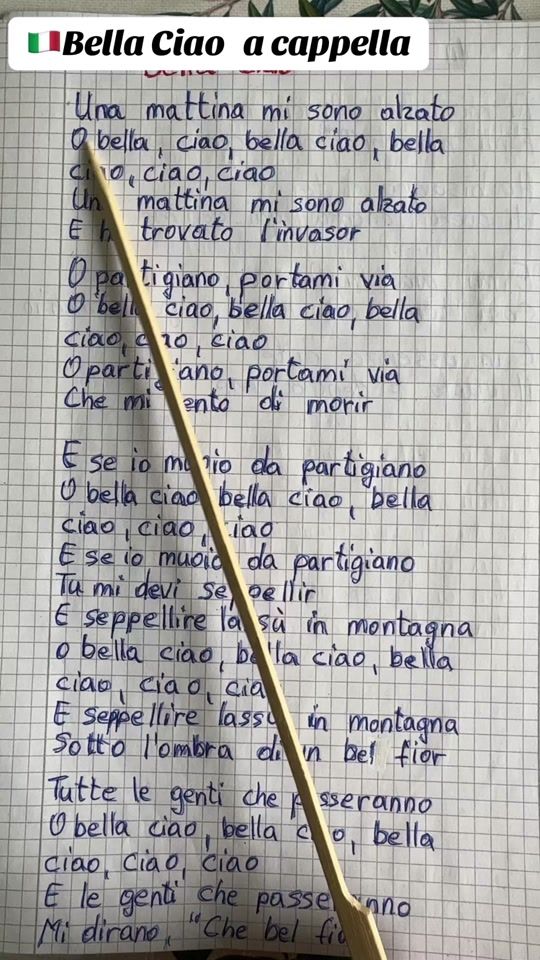 🇮🇹Bella Ciao a cappella
Bella Ciao
Una mattina mi sono alzato
O bella, ciao, bella ciao, bella
ciao, ciao, ciao
Una mattina mi sono alzato
E ho trovato l'invasor
O partigiano, portami via
O bella ciao, bella ciao, bella
ciao, ciao, ciao
O partigiano, portami via
Che mi sento di morir
E se io muoio da partigiano
O bella ciao, bella ciao, bella
ciao, ciao, ciao
E se io muoio da partigiano
Tu mi devi seppellir
E seppellire la sù in montagna
o bella ciao, bella ciao, bella
ciao, ciao, ciao
E seppellire lassù in montagna
Sotto l'ombra di un bel fior
Tutte le genti che passeranno
O bella ciao, bella ciao, bella
ciao, ciao, ciao
E le genti che passeranno
Mi dirano, "Che bel fior